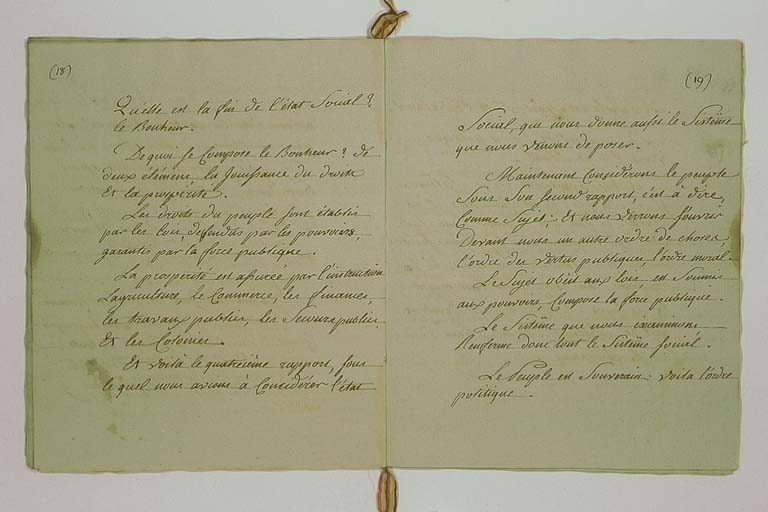 (18)
Quelle est la fin de l'état Social?
le Bonheur.
De quoi se Compose le Bonheur? de
deux élémens, la Jouissance du droits
Et la prospérité.
Les droits du peuple sont établis
par les loix, défendus par les pouvoirs,
garantis par la force publique.
La prospérité est assurée par l'instruction
L'agriculture, le Commerce, les finances,
les travaux publics, les Secours publics
Et les Colonies.
Et voilà le quatrième rapport, sous
le quel nous avions à Considérer l'état
(19)
Social, qui nous donne aussi le Sistême
que nous venons de poser.
Maintenant Considérons le peuple
Sous Son Second rapport, c'est à dire,
Comme Sujet; Et nous verrons s'ouvrir
Devant nous un autre ordre de choses,
l'ordre des vertus publiques, l'ordre moral.
Le Sujet obéit aux lois, est Soumis
aux pouvoirs, Compose la force publique.
Le Sistême que nous examinons
Renferme donc tout le Sistême Social.
Le Peuple est Souverain: voilà l'ordre
politique.